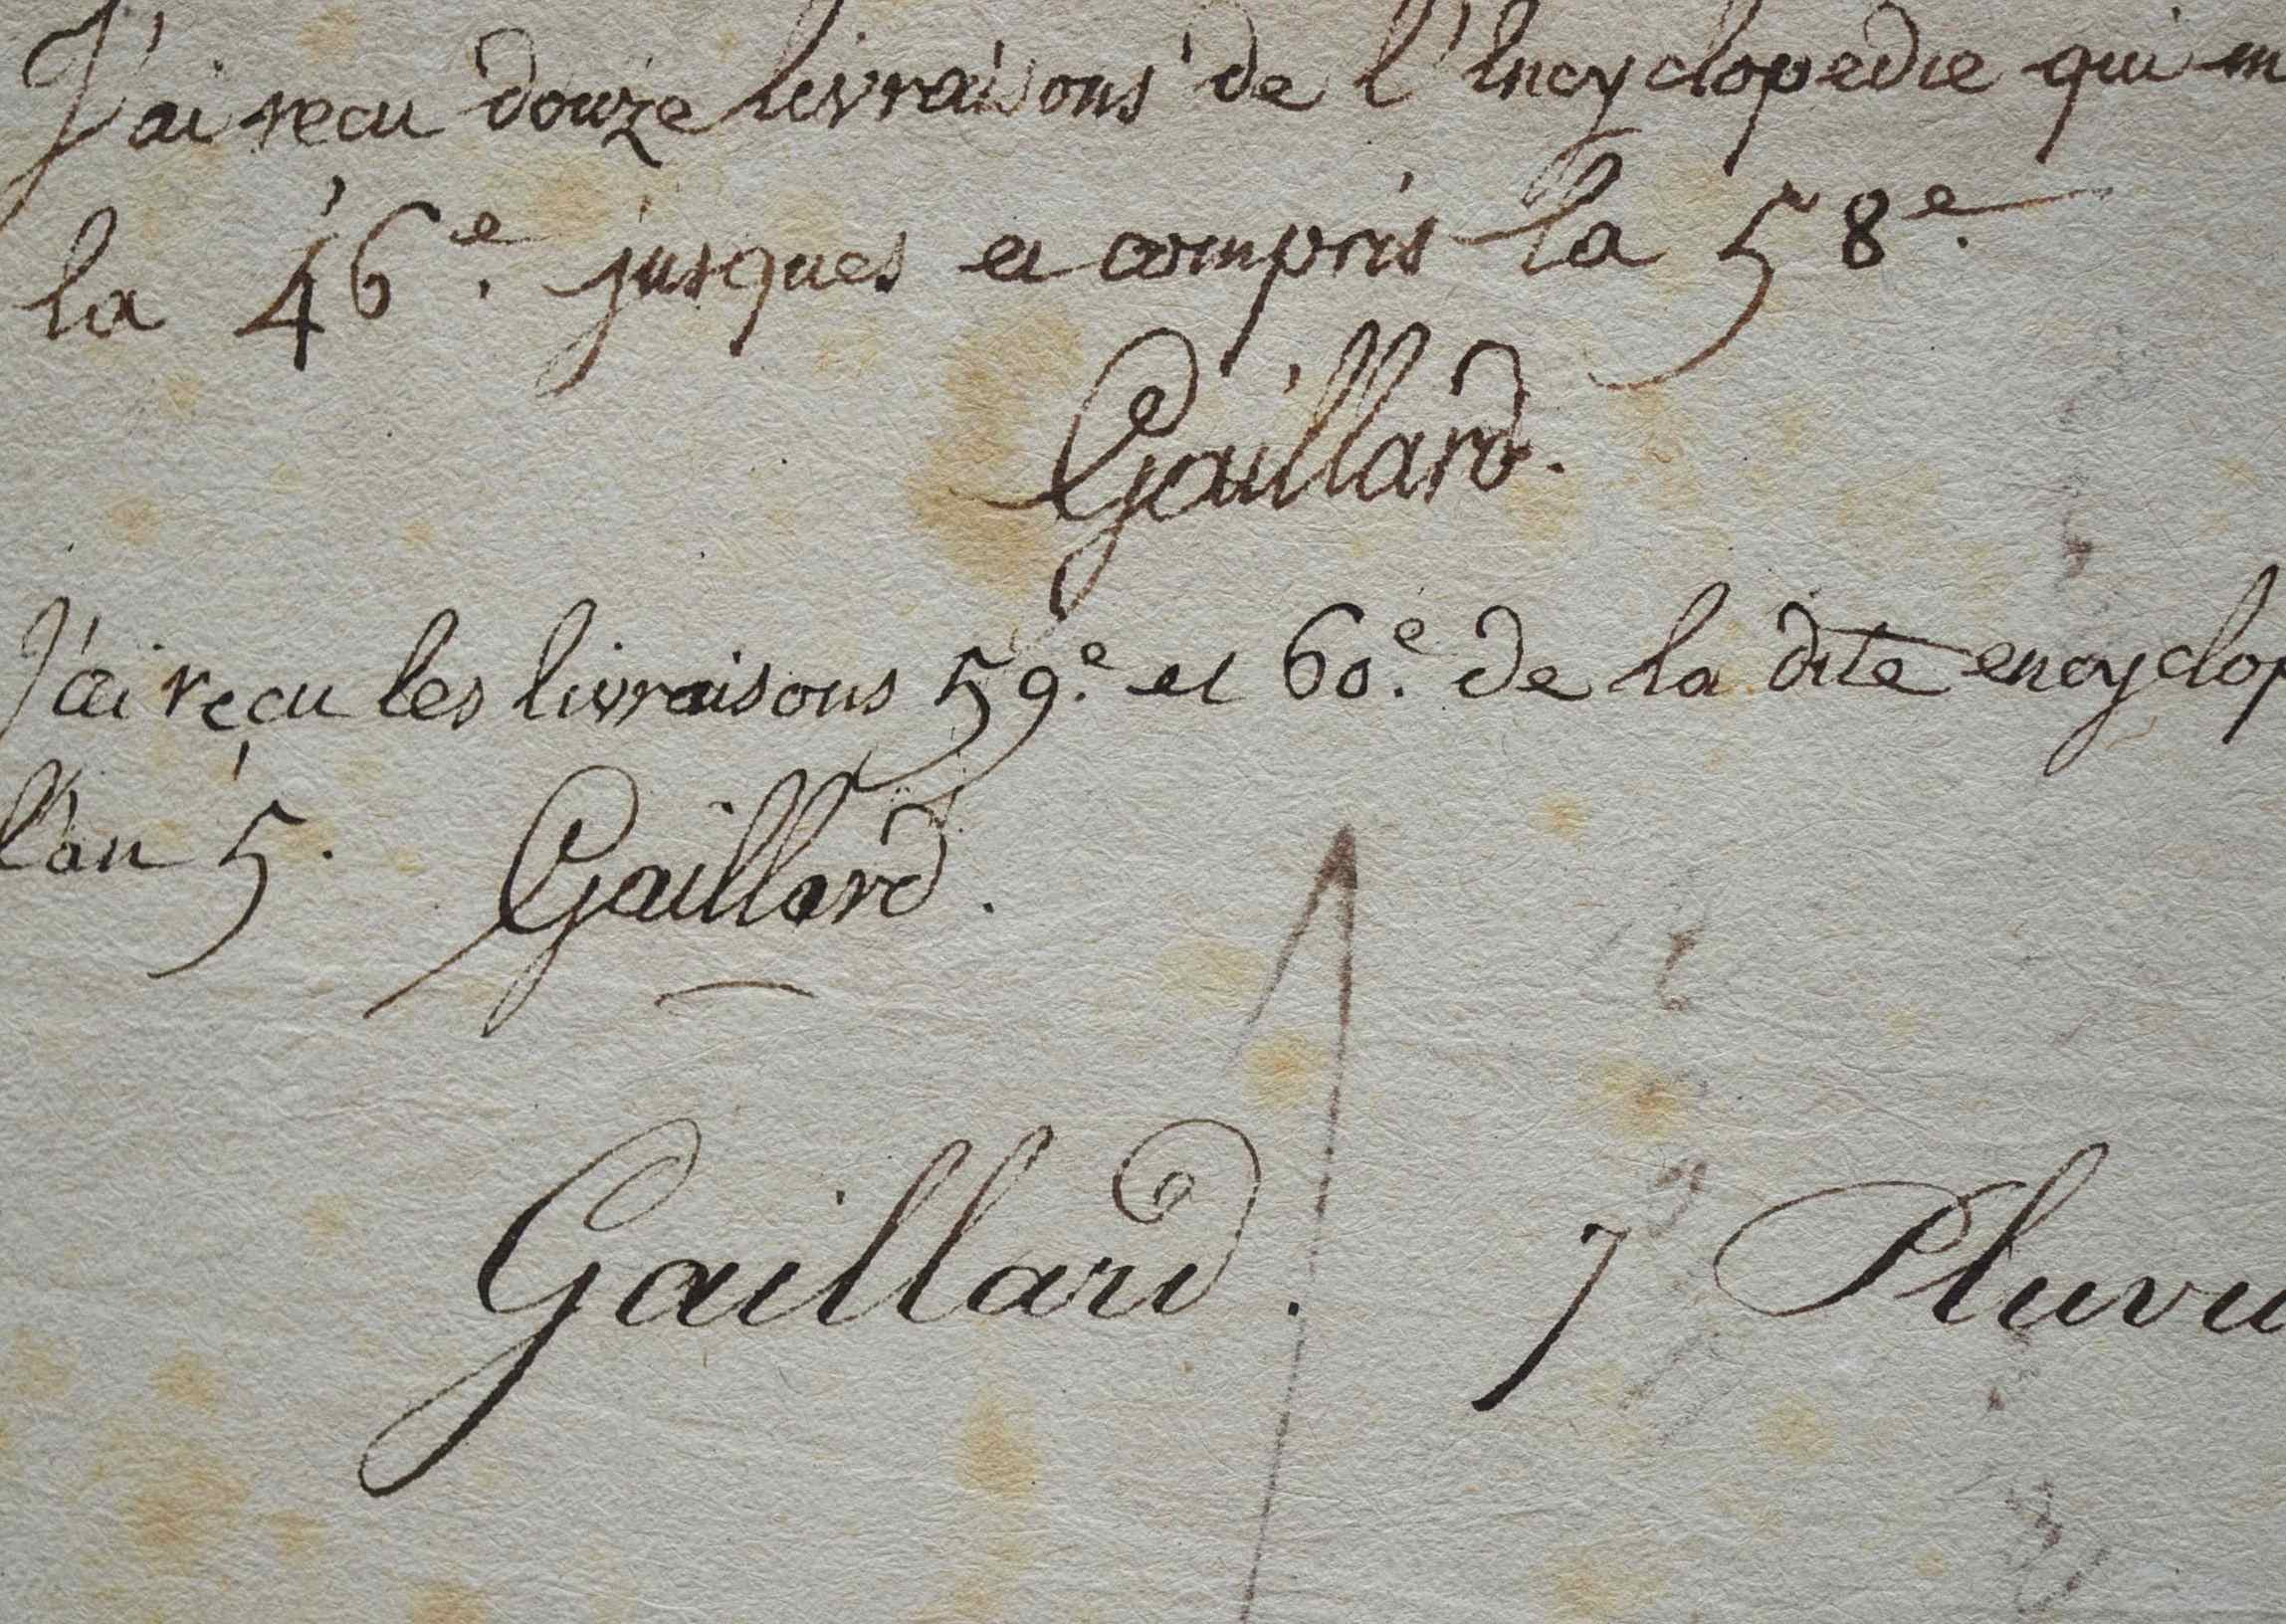 J'ai recu douze livraisons de l'encyclopedie qui m
la 46e. jusques et compris la 58e.
Gaillard.
J'ai reçu les livraisons 59e. et 60e. de la dite encyclop
l'an 5. Gaillard.
Gaillard. 7 Pluvi